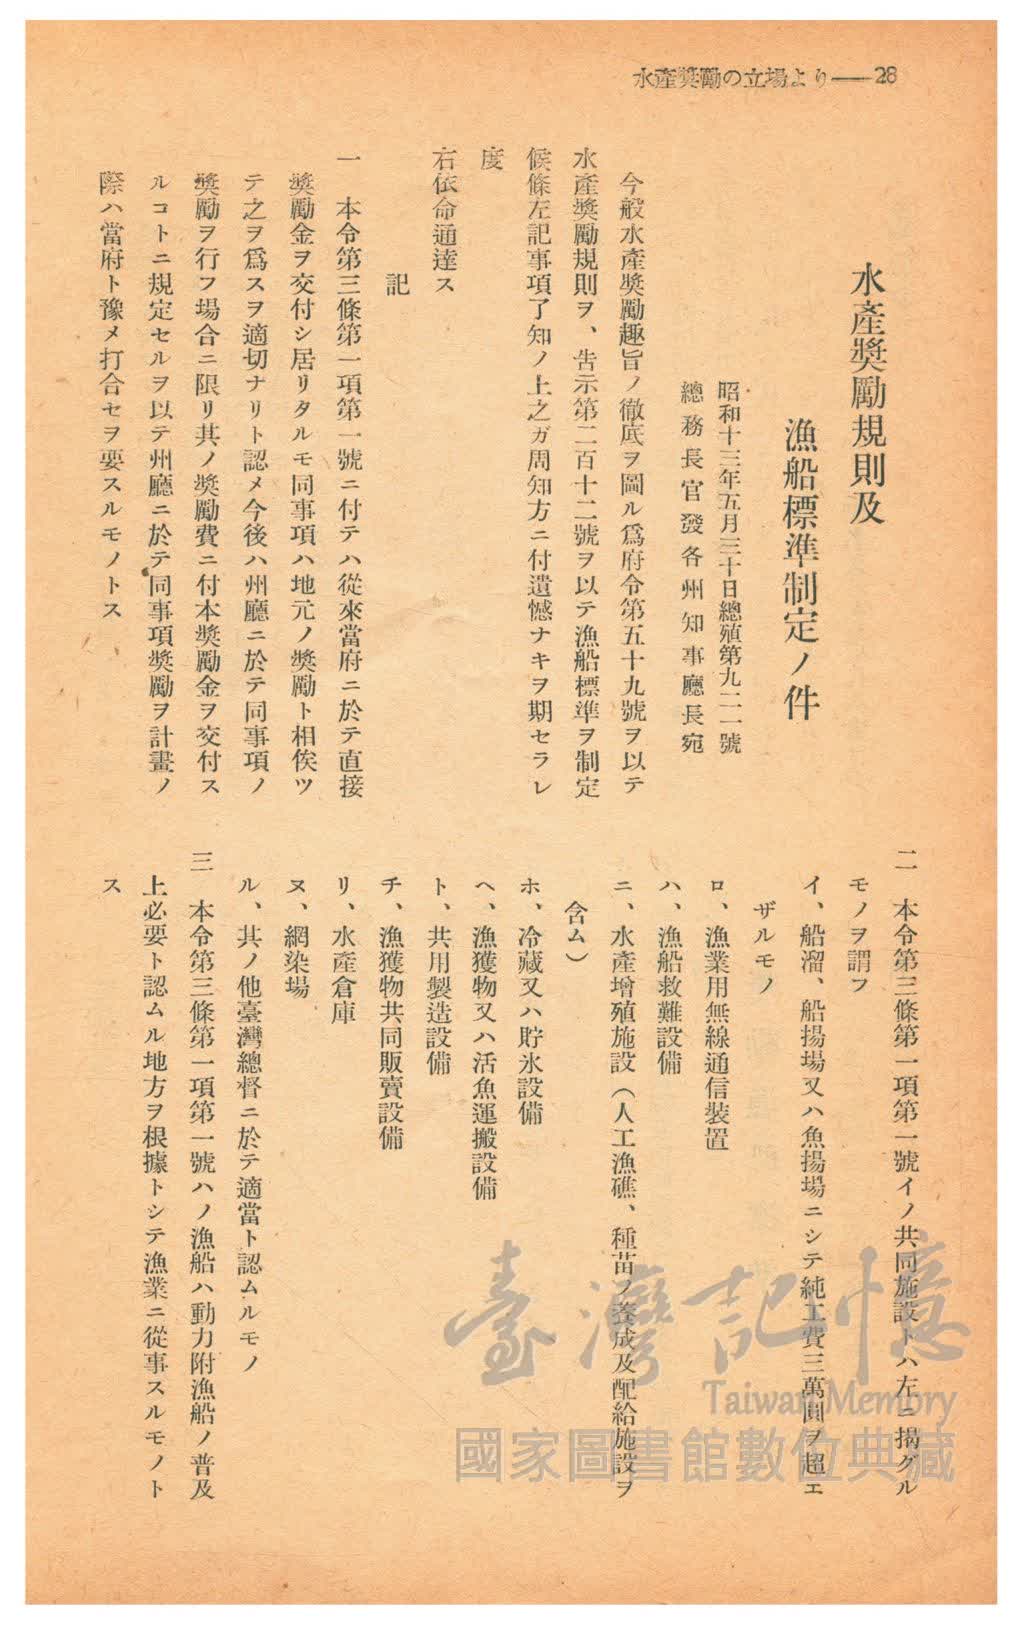 水產獎勵の立場より——28
水產獎勵規則及
漁船標準制定ノ件
昭和十三年五月三十日總殖第九一一號
總務長官發各州知事廳長宛
今般水產獎勵趣旨ノ徹底ヲ圖ル爲府令第五十九號ヲ以テ
水產獎勵規則ヲ、告示第二百十二號ヲ以テ漁船標準ヲ制定
候條左記事項了知ノ上之ガ周知方ニ付遺憾ナキヲ期セラレ
度
右依命通達ス
記
一 本令第三條第一項第一號ニ付テハ從來當府ニ於テ直接
獎勵金ヲ交付シ居リタルモ同事項ハ地元ノ獎勵ト相俟ツ
テ之ヲ爲スヲ適切ナリト認メ今後ハ州廳ニ於テ同事項ノ
獎勵ヲ行フ場合ニ限リ其ノ獎勵費ニ付本獎勵金ヲ交付ス
ルコトニ規定セルヲ以テ州廳ニ於テ同事項獎勵ヲ計畫ノ
際ハ當府ト豫メ打合セヲ要スルモノトス
二 本令第三條第一項第一號イノ共同施設トハ左ニ揭グル
モノヲ謂フ
イ、船溜、船揚場又ハ魚揚場ニシテ純工費三萬圓ヲ超エ
ザルモノ
ロ、漁業用無線通信裝置
ハ、漁船救難設備
ニ、水產增殖施設（人工漁礁、種苗ノ養成及配給施設ヲ
含ム）
ホ、冷藏又ハ貯氷設備
ヘ、漁獲物又ハ活魚運搬設備
ト、共用製造設備
チ、漁獲物共同販賣設備
リ、水產倉庫
ヌ、網染場
ル、其ノ他臺灣總督ニ於テ適當ト認ムルモノ
三 本令第三條第一項第一號ハノ漁船ハ動力附漁船ノ普及
上必要ト認ムル地方ヲ根據トシテ漁業ニ從事スルモノト
ス
臺灣記憶
Taiwan Memory
國家圖書館數位典藏